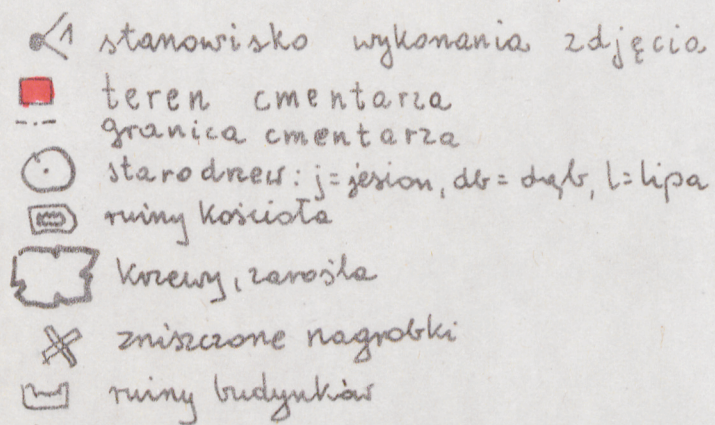 1 stanowisko wykonania zdjęcia
teren cmentarza
granica cmentarza
starodrzew: j=jesion, db=dąb, l=lipa
ruiny kościoła
krzewy, zarośla
zniszczone nagrobki
ruiny budynków